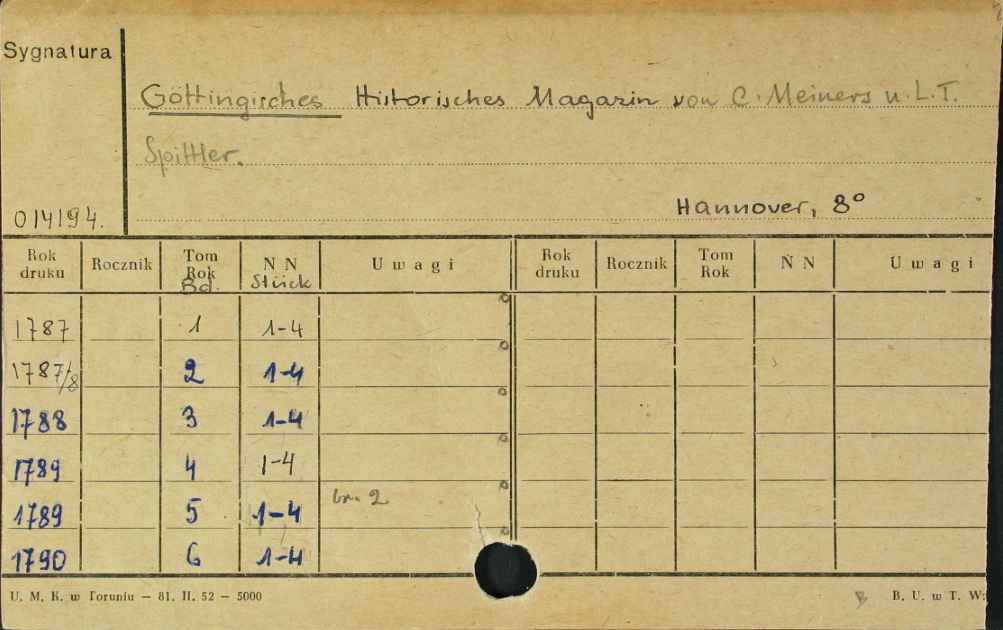 Sygnatura
Göttingisches Historisches Magazin von C. Meiners u. L.T.
Spittler.
Hannover, 8°
014194.
Rok druku Rocznik Tom Rok Bd. N N Stück Uwagi Rok druku Rocznik Tom Rok N N Uwagi
1787 1 1-4
1787/8 2 1-4
1788 3 1-4
1789 4 1-4
1789 5 1-4 br. 2
1790 6 1-4
U. M. K. w Toruniu – 81. II. 52 – 5000 B B. U. w T. W: